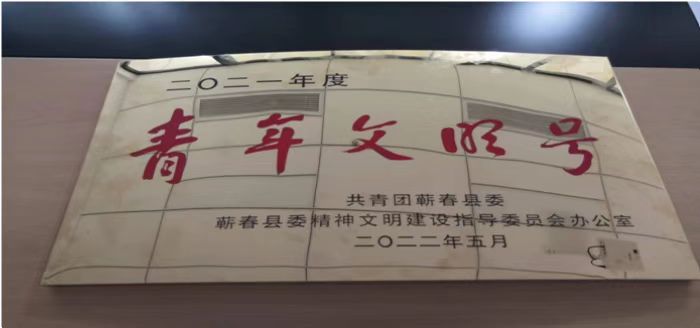 二〇二一年度
青年文明号
共青团蕲春县委
蕲春县委精神文明建设指导委员会办公室
二〇二二年五月